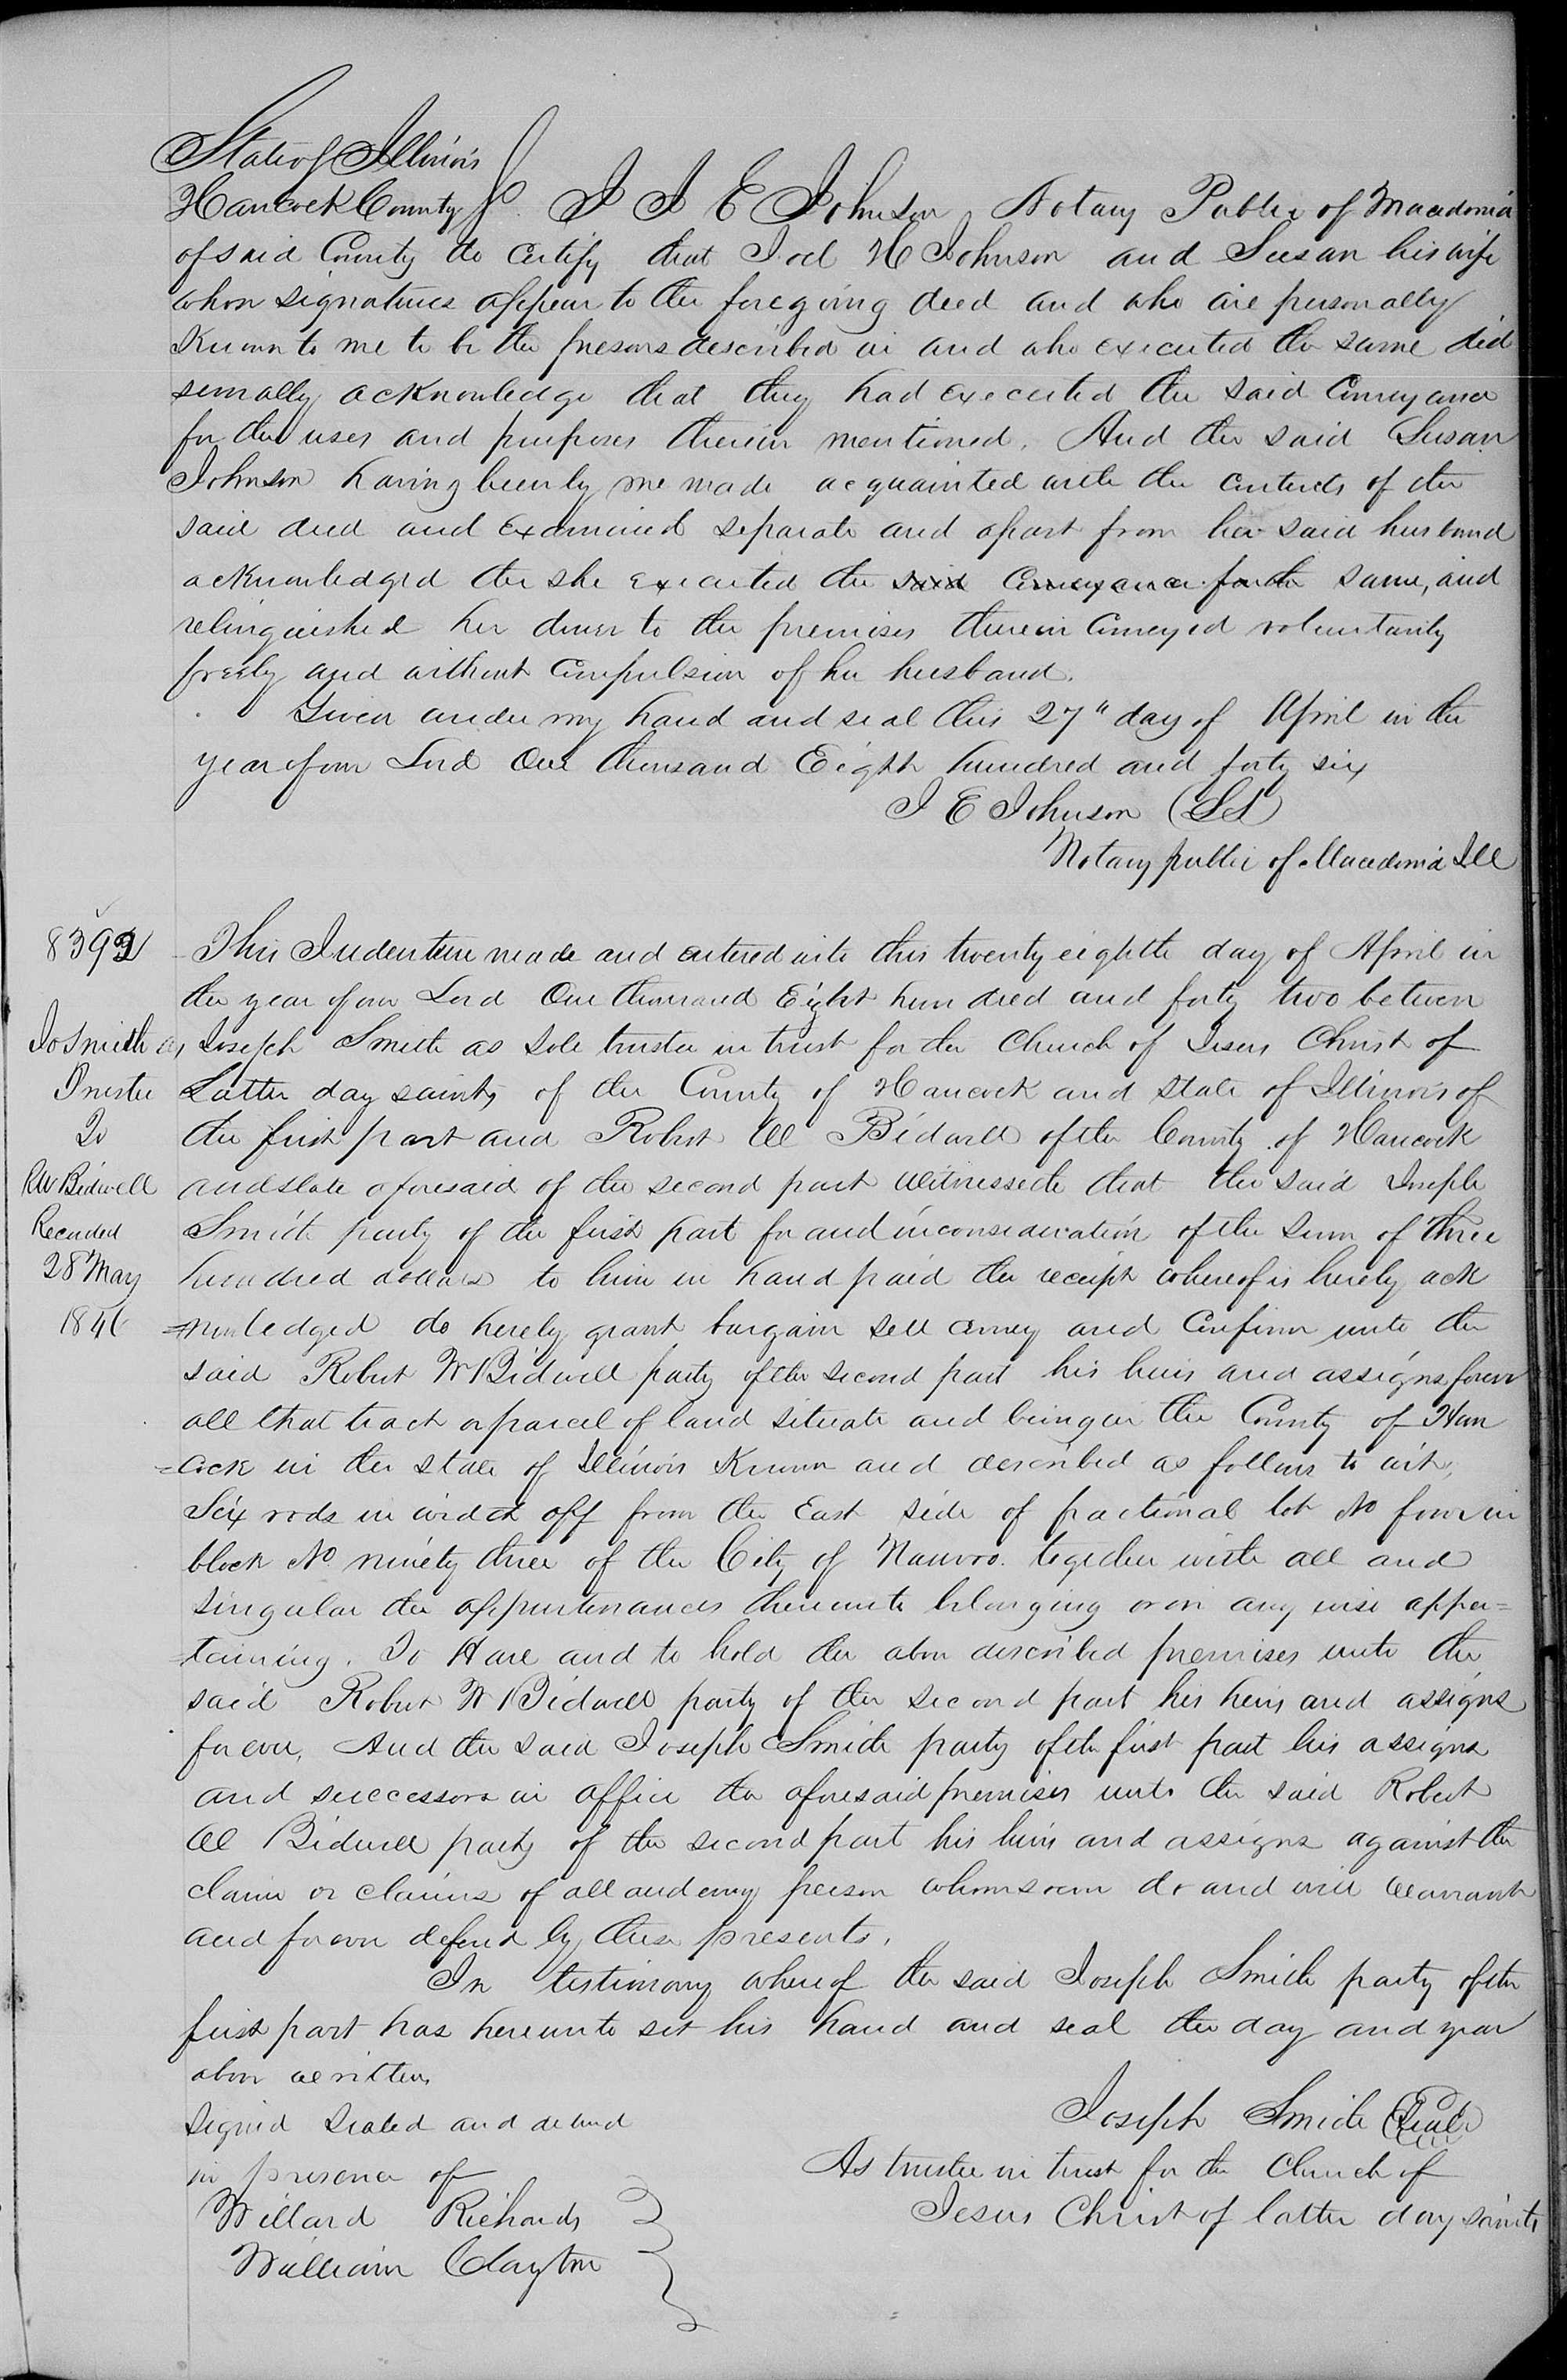 State of Illinois
Hancock County S. I J E Johnson, Notary Public of Macedonia
of said County do certify that Joel H Johnson and Susan his wife
whose signatures appear to the foregoing deed and who are personally
Known to me to be the presons described in and who executed the same did
severally acknowledge that they had executed the said Conveyance
for the uses and purposes therein mentioned. And the said Susan
Johnson having been by me made acquainted with the contents of the
said deed and examined separate and apart from her said husband
acknowledged the she executed the said Conveyance for the same, and
relinquished her dower to the premises therein Conveyed voluntarily
freely and without Compulsion of her husband.
Given under my hand and seal this 27" day of April in the
year of our Lord One thousand Eight hundred and forty six
J E Johnson (LS)
Notary public of Macedonia Ill
8392
Jo Smith as
Trustee
To
R W Bidwell
Recorded
28 May
1846
This Indenture made and entered into this twenty eighth day of April in
the year of our Lord One thousand Eight hundred and forty two between
Joseph Smith as Sole trustee in trust for the Church of Jesus Christ of
Latter day saints of the County of Hancock and State of Illinois of
the first part and Robert W Bidwell of the County of Hancock
and state aforesaid of the second part Witnesseth that the said Joseph
Smith party of the first part for and in consideration of the sum of three
hundred dollars to him in hand paid the receipt whereof is hereby ack
=nowledged do hereby grant bargain sell convey and Confirm unto the
said Robert W Bidwell party of the second part his heirs and assigns forever
all that tract or parcel of land situate and being in the County of Han
=cock in the state of Illinois Known and described as follows to wit,
Six rods in width off from the East side of fractional lot No four in
block No ninety three of the City of Nauvoo. together with all and
singular the appurtenances thereunto belonging or on any wise apper=
=taining. To Have and to hold the above described premises unto the
said Robert W Bidwell party of the second part his heirs and assigns
forever, And the said Joseph Smith party of the first part his assigns
and successors in office the aforesaid premises unto the said Robert
W Bidwell party of the second part his heirs and assigns against the
claim or claims of all and every person whomsoever do and will Warrant
and forever defend by these presents.
In testimony whereof the said Joseph Smith party of the
first part has hereunto set his hand and seal the day and year
above written
Signed Sealed and delivered
in presence of
Willard Richards
William Clayton
Joseph Smith (Seal)
As trustee in trust for the Church of
Jesus Christ of latter day saints